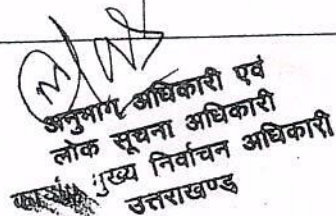 अनुभाग अधिकारी एवं
लोक सूचना अधिकारी
मुख्य निर्वाचन अधिकारी
उत्तराखण्ड